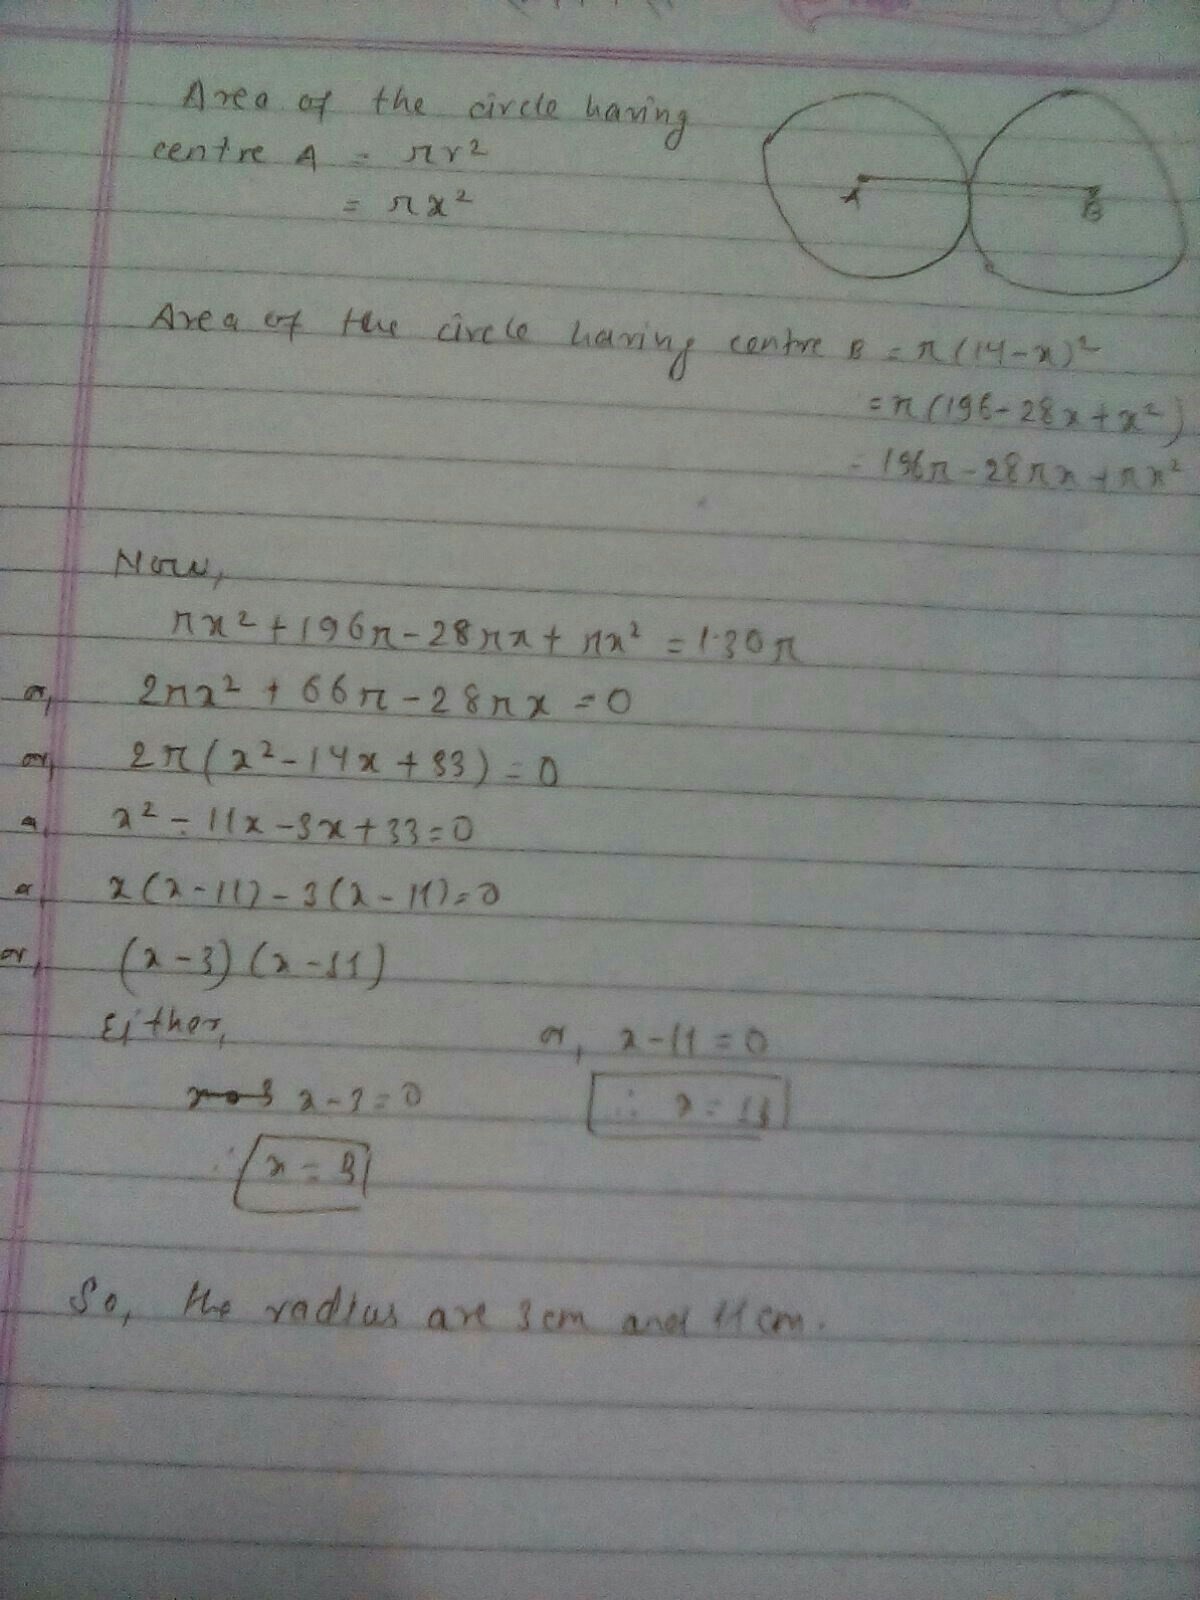 Area of the circle having
centre A = πr²
= πx²
A
B
Area of the circle having centre B = π(14-x)²
= π(196-28x+x²)
= 196π-28πx+πx²
Now,
πx²+196π-28πx+πx² = 130π
or, 2πx²+66π-28πx = 0
or, 2π(x²-14x+33) = 0
or, x²-11x-3x+33=0
or, x(x-11)-3(x-11)=0
or, (x-3)(x-11)
Either,
x-3=0
∴ x=3
or, x-11=0
∴ x=11
So, the radius are 3cm and 11cm.